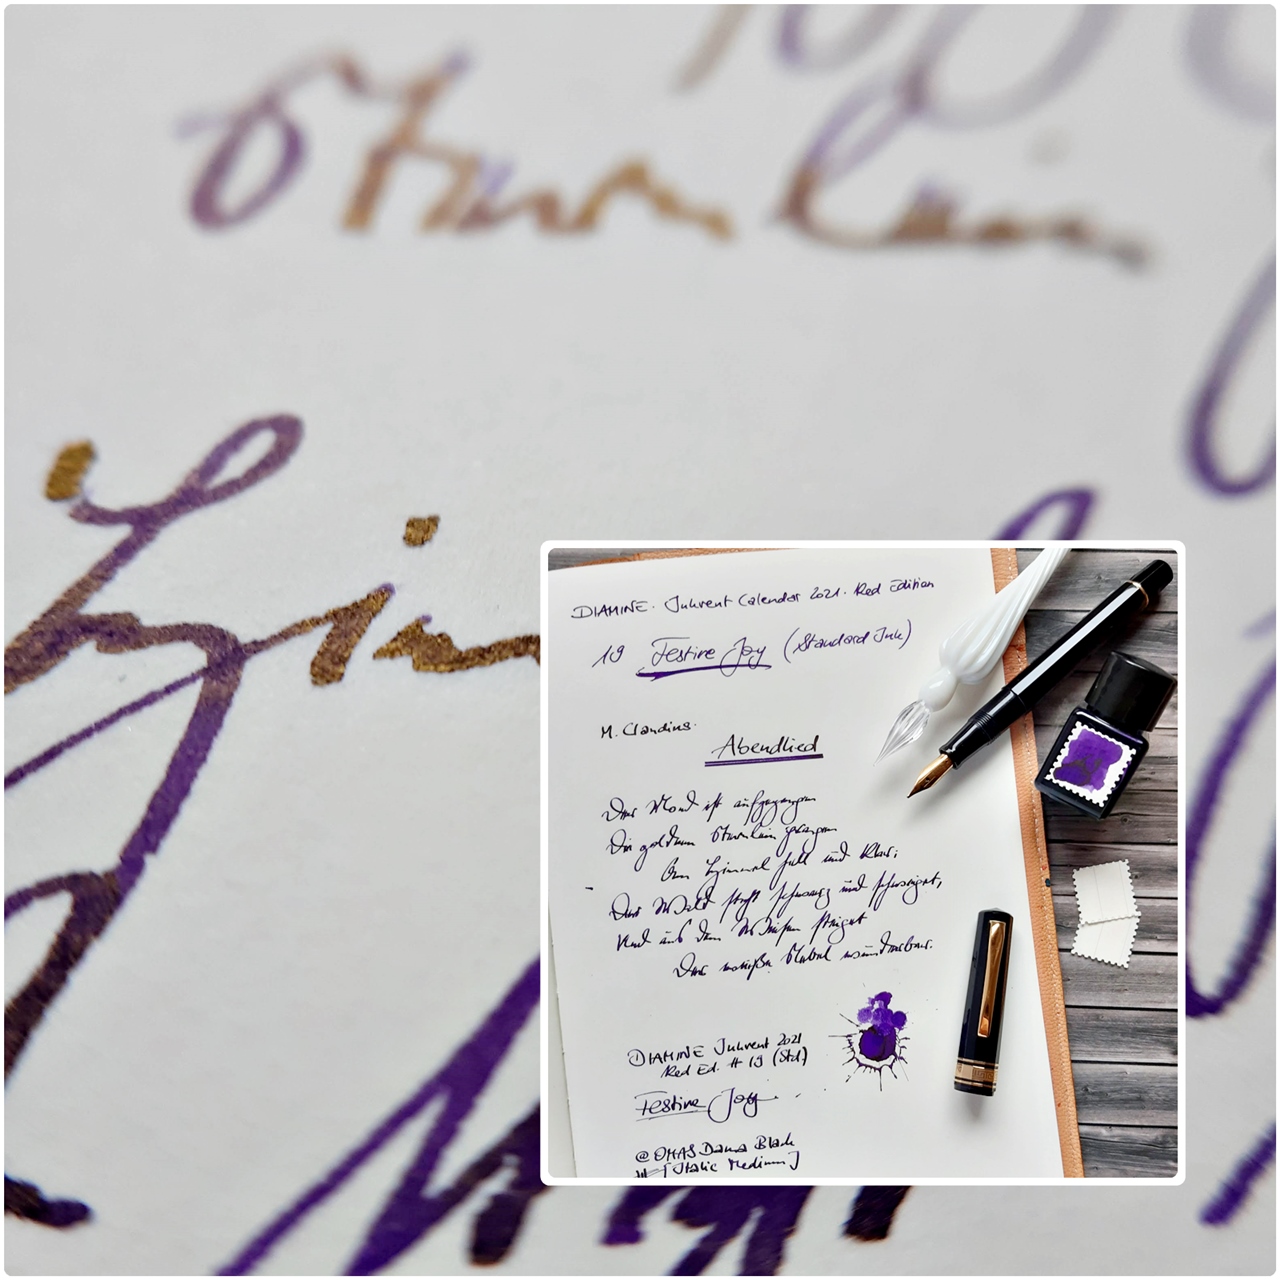 Sternlein
Him
DIAMINE. Inkvent Calendar 2021. Red Edition
19 Festive Joy (Standard Ink)
M. Claudius.
Abendlied
Der Mond ist aufgegangen
Die goldnen Sternlein prangen
Am Himmel hell und klar;
Der Wald steht schwarz und schweiget,
Und aus den Wiesen steiget
Der weiße Nebel wunderbar.
DIAMINE Inkvent 2021
Red Ed. # 19 (Std.)
Festive Joy.
@ OMAS Dama Black
[Italic Medium]